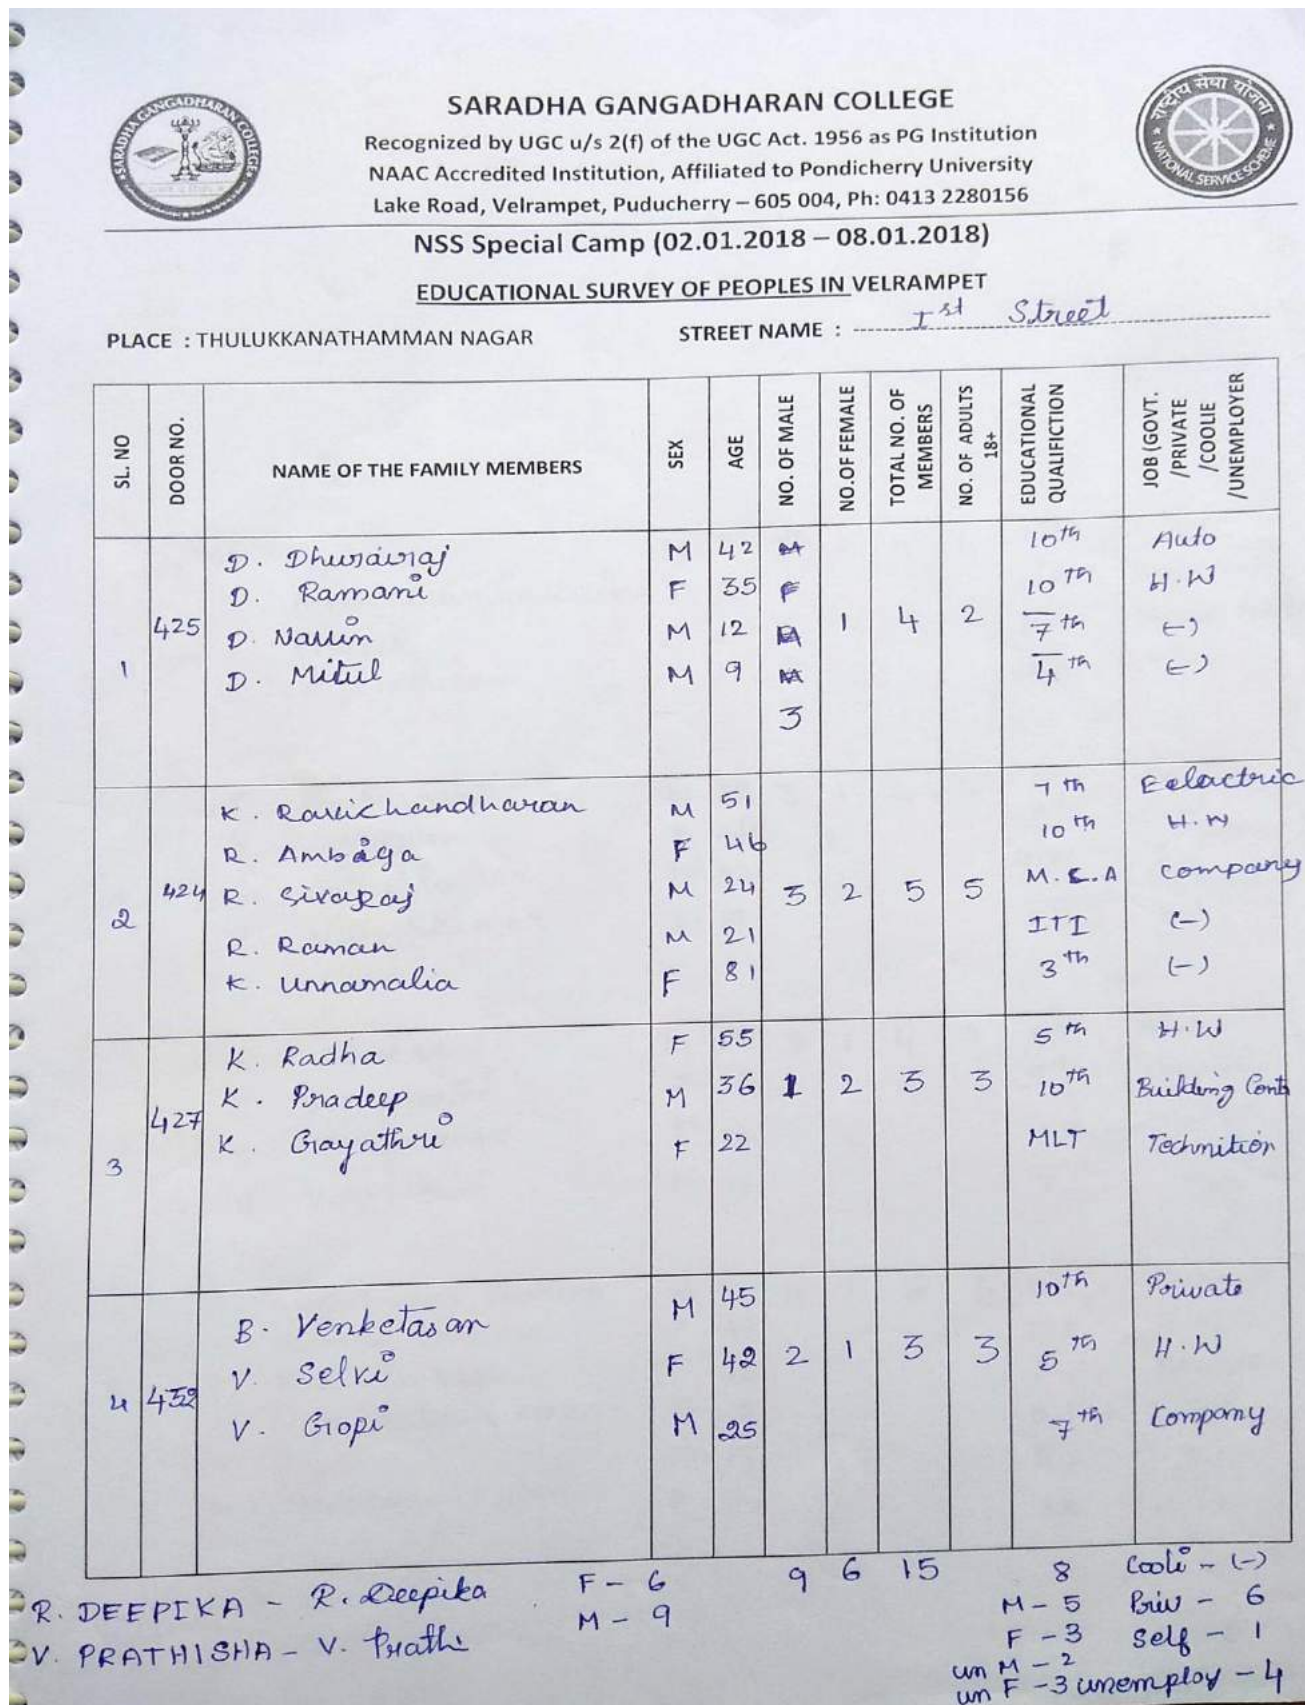 SARADHA GANGADHARAN COLLEGE
Recognized by UGC u/s 2(f) of the UGC Act. 1956 as PG Institution
NAAC Accredited Institution, Affiliated to Pondicherry University
Lake Road, Velrampet, Puducherry – 605 004, Ph: 0413 2280156
SARADHA GANGADHARAN COLLEGE
राष्ट्रीय सेवा योजना
NATIONAL SERVICE SCHEME
NSS Special Camp (02.01.2018 – 08.01.2018)
EDUCATIONAL SURVEY OF PEOPLES IN VELRAMPET
PLACE : THULUKKANATHAMMAN NAGAR STREET NAME : Ist Street
SL. NO DOOR NO. NAME OF THE FAMILY MEMBERS SEX AGE NO. OF MALE NO.OF FEMALE TOTAL NO. OF MEMBERS NO. OF ADULTS 18+ EDUCATIONAL QUALIFICTION JOB (GOVT. /PRIVATE /COOLIE /UNEMPLOYER
D. Dhurairaj M 42 10th Auto
D. Ramani F 35 10th H.W
1 425 D. M 12 3 1 4 2 7th (-)
D. Mitul M 9 4th (-)
K. Ravichandharan M 51 7th Eelactric
R. Ambiga F 46 10th H.W
2 424 R. Sivaraj M 24 3 2 5 5 M.C.A company
R. Raman M 21 ITI (-)
K. Unnamalia F 81 3th (-)
K. Radha F 55 5th H.W
3 427 K. Pradeep M 36 1 2 3 3 10th Building Cont
K. Gayathri F 22 MLT Technition
B. Venketasan M 45 10th Private
4 452 V. Selvi F 42 2 1 3 3 5th H.W
V. Gopi M 25 7th Company
R. DEEPIKA - R. Deepika F - 6 9 6 15 8 Cooli - (-)
V. PRATHISHA - V. Prathi M - 9 M - 5 Priv - 6
F - 3 Self - 1
un M - 2
un F - 3 unemploy - 4